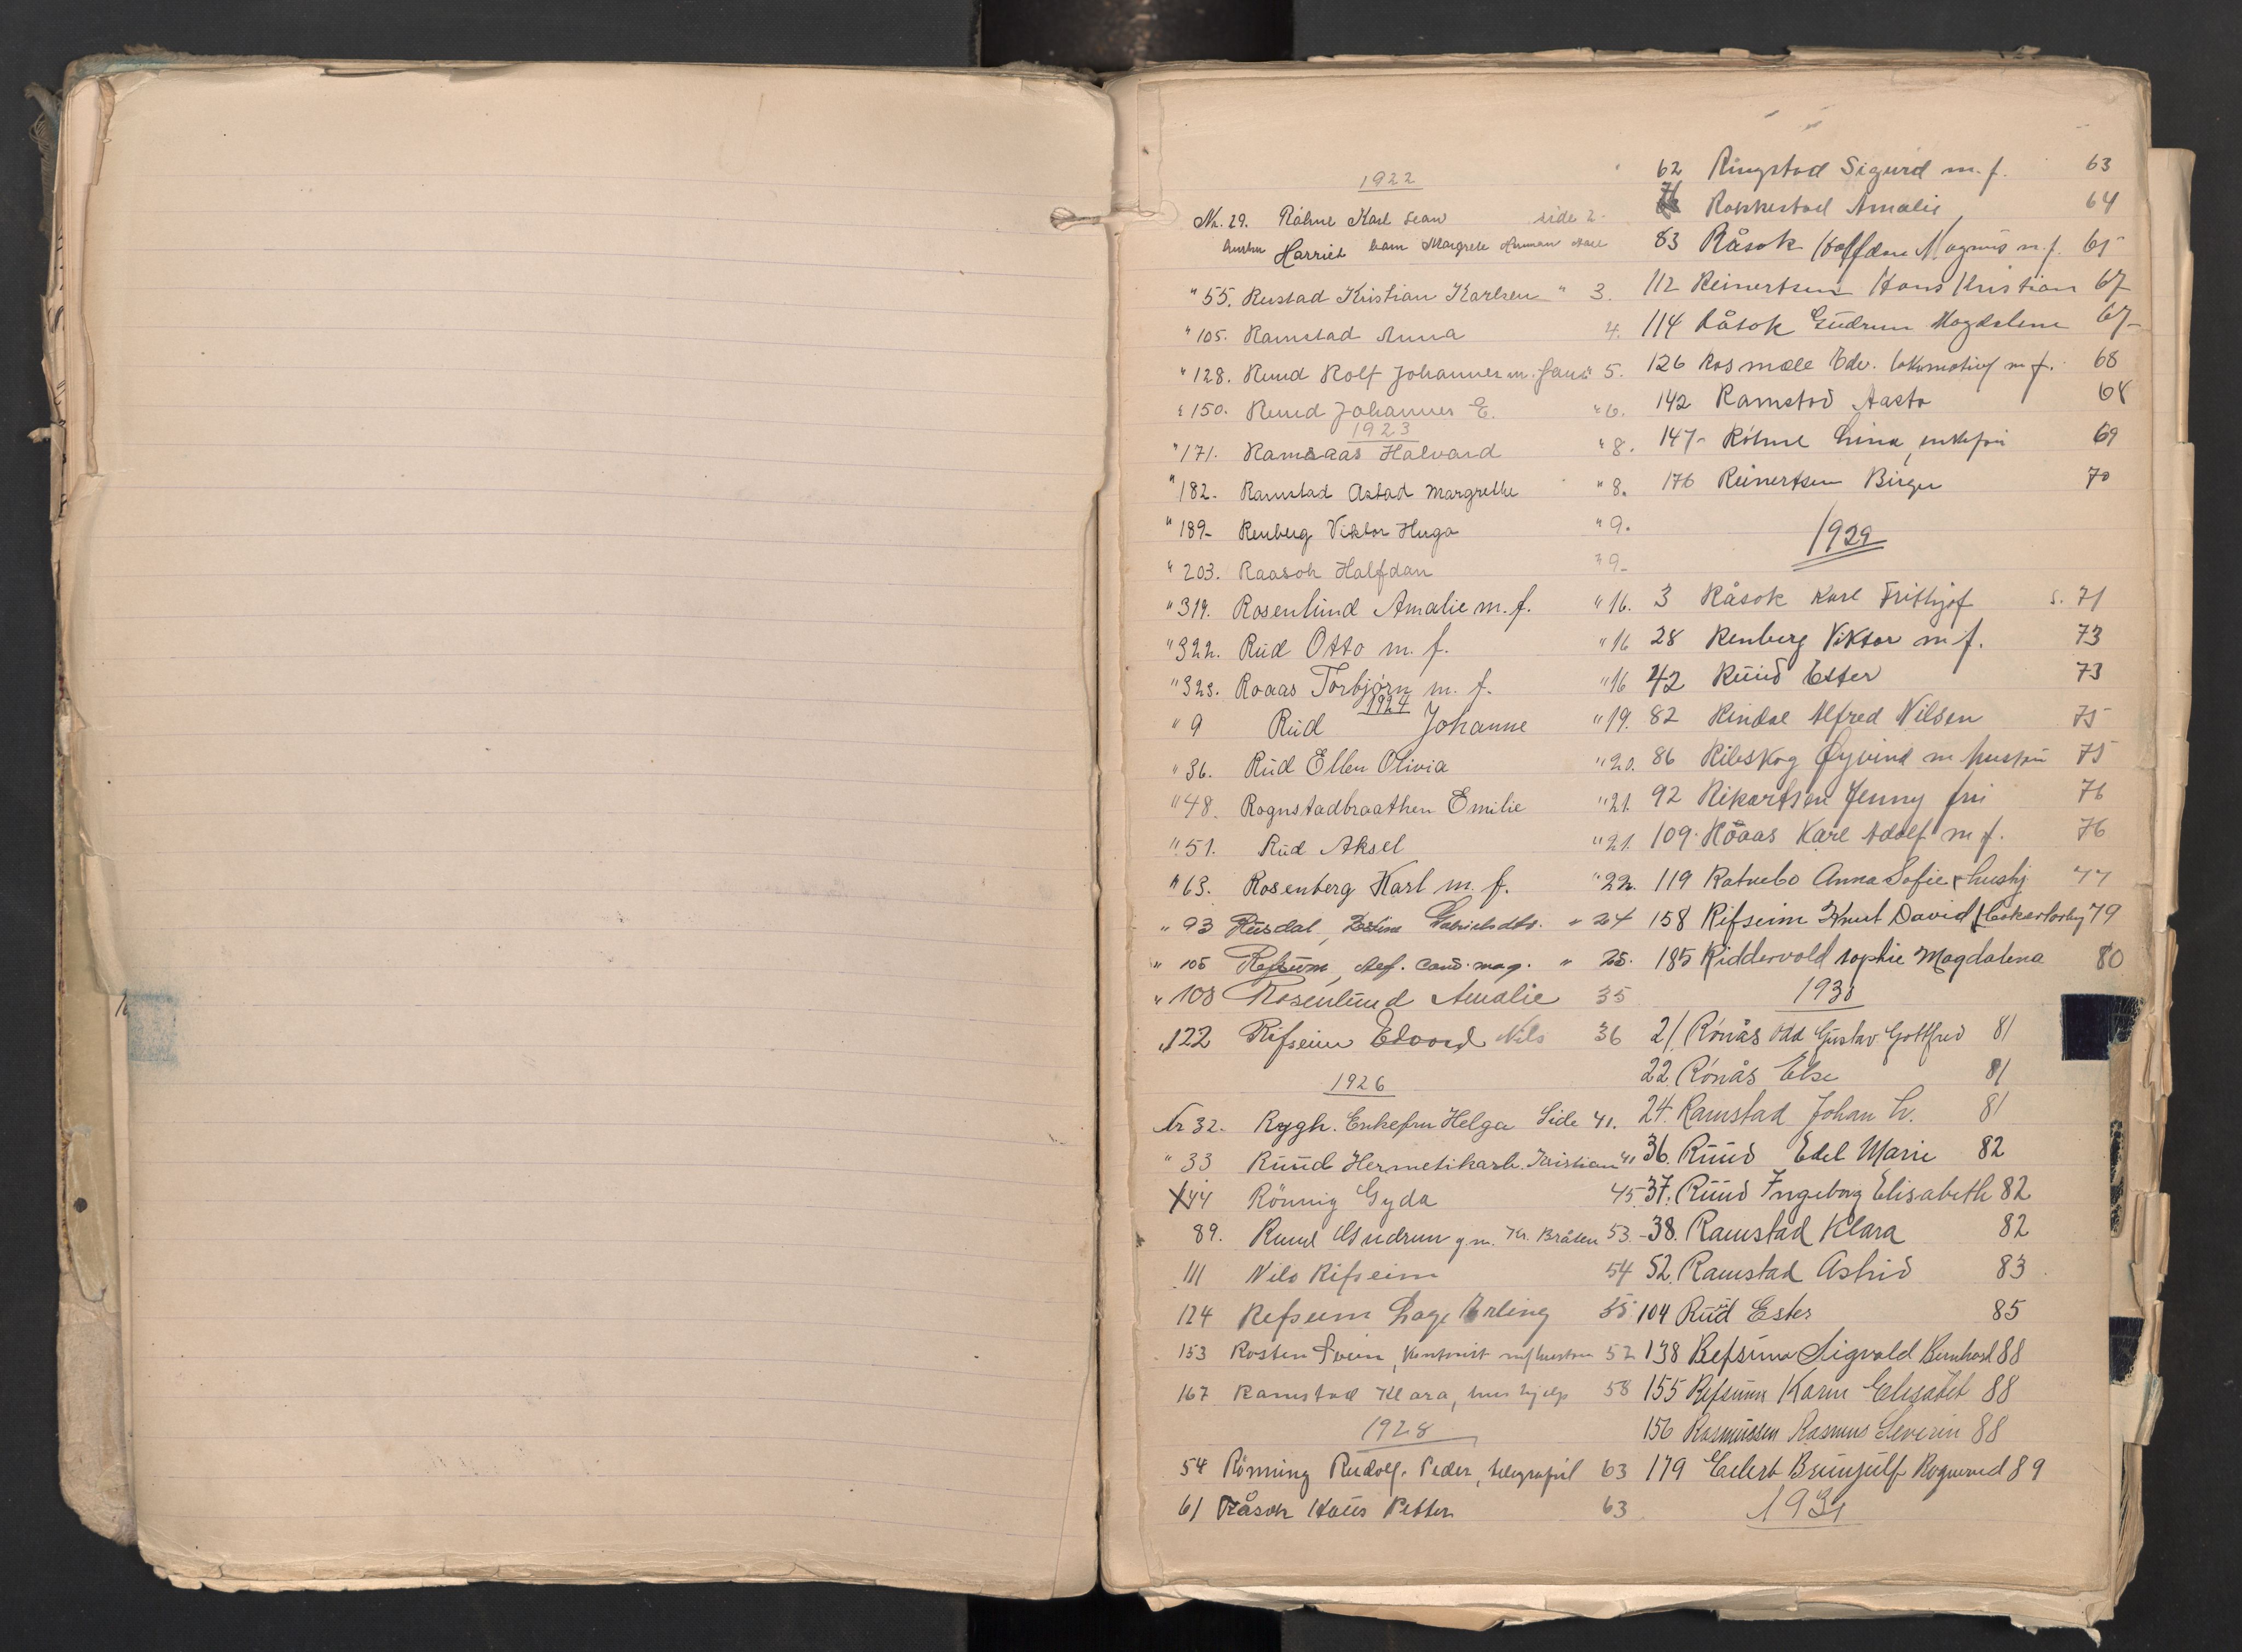 1922
No. 29. Råhne Karl Jean side 2.
hustru Harriet barn Margrete Herman
" 55. Rustad Kristian Karlsen " 3.
" 105. Ramstad Anna 4.
" 128. Ruud Rolf Johannes m. fam. " 5.
" 150. Ruud Johannes E. " 6.
1923
" 171. Ramsaas Halvard " 8.
" 182. Ramstad Astad Margrethe " 8.
" 189 - Renberg Viktor Hugo " 9.
" 203. Raasok Halfdan " 9 -
" 319. Rosenlund Amalie m. f. " 16.
" 322. Rud Otto m. f. " 16
" 323. Roaas Torbjörn m. f. " 16
1924
" 9 Rud Johanne " 19.
" 36. Rud Ellen Olivia " 20.
" 48. Rognstadbraathen Emilie " 21.
" 51. Rud Aksel " 21.
" 63. Rosenberg Karl m. f. " 22.
" 93 Rusdal, Gabrielsdtr. " 24
" 105 Refsum, cand. mag. " 25.
" 108 Rosenlund Amalie 35
" 122 Rifseim Edvard Nils 36
1926
Nr 32. Rygh. Enkefru Helga Side 41.
" 33 Ruud Hermetikarb. Kristian " 41
44 Rönnig Gyda 45
89. Ruud Gudrun g.m. Kr. Bråten 53 -
111 Nils Rifseim 54
124 Refseim Dage Erling 55
153 Rosten Svein, kontorist m/hustru 57
167 Ramstad Klara, hushjelp 58
1928
54 Rönning Rudolf. Peder, telegrafist 63
61 Råsok Hans Petter 63
62 Ringstad Sigurd m. f. 63
76 Rokkestad Amalie 64
83 Råsok Halfdan Magnus m. f. 65
112 Reinertsen Hans Kristian 67
114 Råsok Gudrun Magdalene 67 -
126 Rosmæle Edv. lokomotivf m. f. 68
142 Ramstad Aasta 68
147 - Röhne Lina, enkefru 69
176 Reinertsen Birger 70
1929
3 Råsok Karl Frithjof s. 71
28 Renberg Viktor m f. 73
42 Ruud Ester 73
82 Rindal Alfred Nilsen 75
86 Ribskog Øyvind m hustru 75
92 Rikartsen Jenny fru 76
109. Roaas Karl Adolf m f. 76
119 Ratvebo Anna Sofie hushj 77
158 Rifseim Knut David 79
185 Riddervold Sophie Magdalena 80
1930
21 Rönås Odd Gustav Gottfred 81
22. Rönås Else 81
24. Ramstad Johan H. 81
36. Ruud Edel Marie 82
37. Ruud Ingeborg Elisabeth 82
38. Ramstad Klara 82
52. Ramstad Astrid 83
104 Rud Ester 85
138 Refsum Sigvald Bernhard 88
155 Refsum Karin Elisabet 88
156 Rasmussen Rasmus Severin 88
179 Eilert Brunjulf Rognerud 89
1931